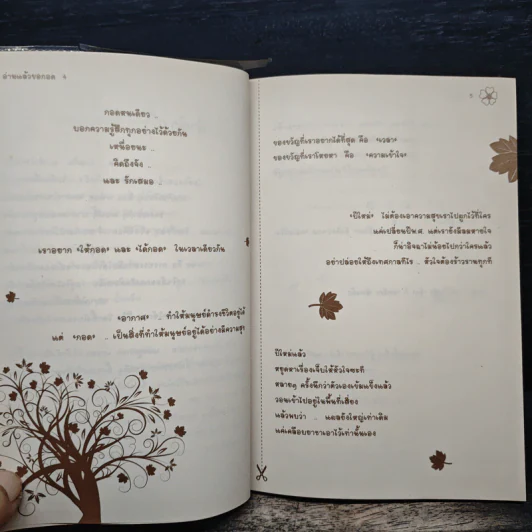 อ่านแล้วขอกอด 4
กอดหนเดียว ..
บอกความรู้สึกทุกอย่างไว้ด้วยกัน
เหนื่อยนะ ..
คิดถึงจัง ..
และ รักเสมอ ..
เราอยาก "ให้กอด" และ "ได้กอด" ในเวลาเดียวกัน
"อากาศ" ทำให้มนุษย์ดำรงชีวิตอยู่ได้
แต่ "กอด" .. เป็นสิ่งที่ทำให้มนุษย์อยู่ได้อย่างมีความสุข
5
ของขวัญที่เราอยากได้ที่สุด คือ "เวลา"
ของขวัญที่เราโหยหา คือ "ความเข้าใจ"
"ปีใหม่" ไม่ต้องเอาความสุขเราไปผูกไว้ที่ใคร
แค่เปลี่ยนปีพ.ศ. แต่เรายังมีลมหายใจ
ก็น่าดีใจมาไม่น้อยไปกว่าใครแล้ว
อย่าปล่อยให้ถึงเทศกาลทีไร .. หัวใจต้องร้าวรานทุกที
ปีใหม่แล้ว
หยุดหาเรื่องเจ็บให้หัวใจซะที
หลายๆ ครั้งนึกว่าตัวเองเข้มแข็งแล้ว
วอนเข้าไปอยู่ในพื้นที่เสี่ยง
แล้วพบว่า .. แผลยังใหญ่เท่าเดิม
แค่เคลือบยาชาเอาไว้เท่านั้นเอง